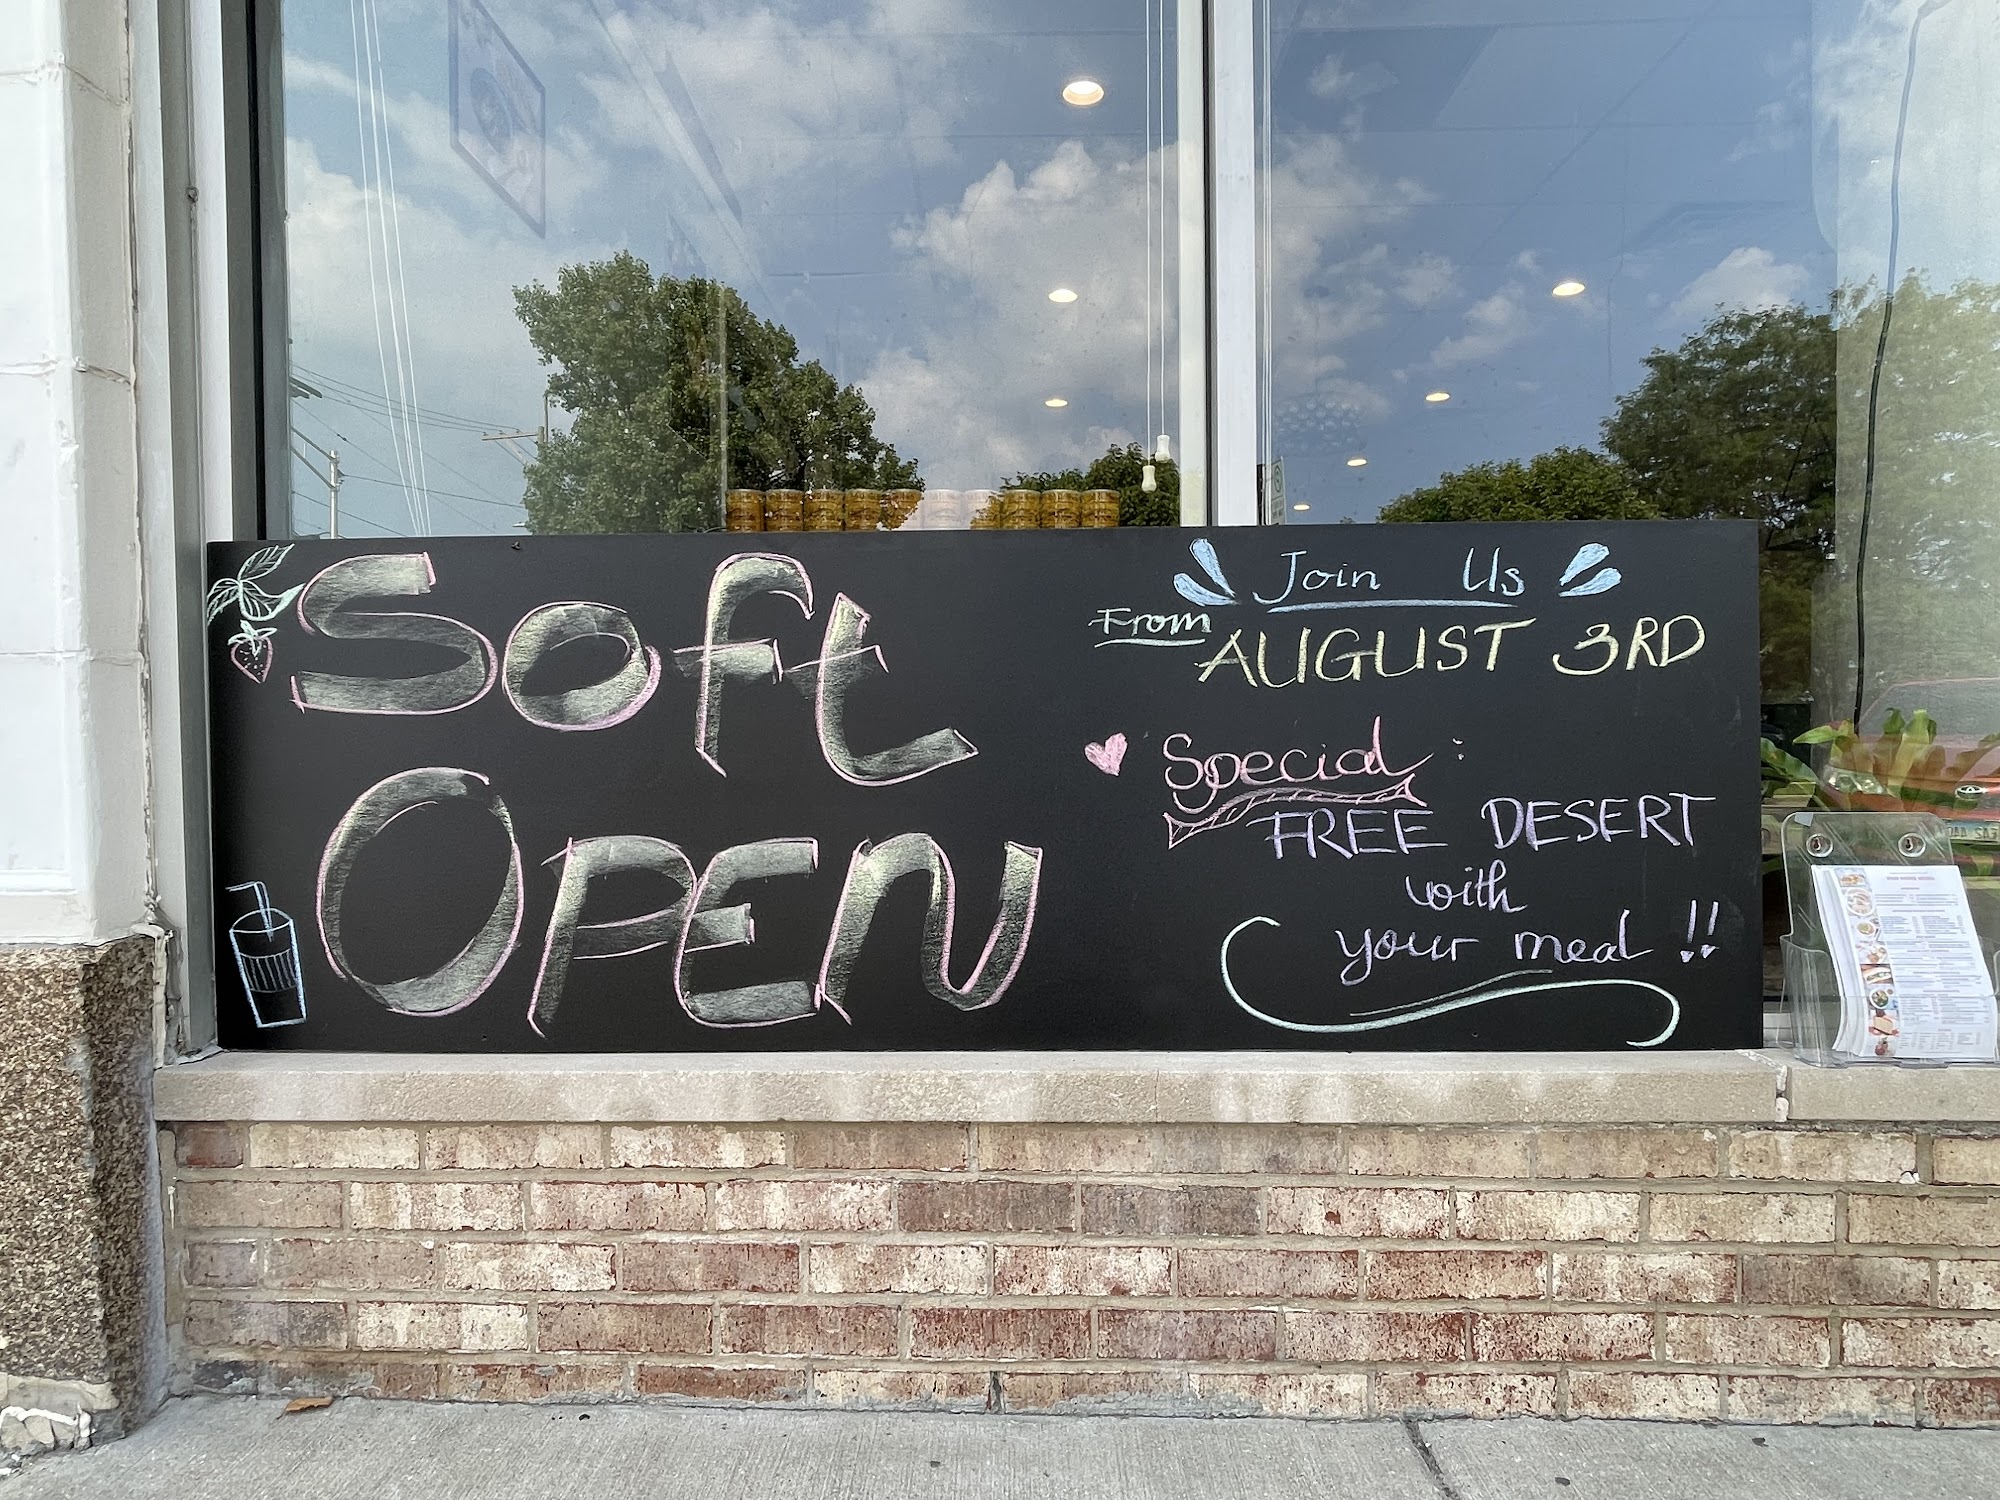 Soft
OPEN
Join Us
From AUGUST 3RD
Special :
FREE DESERT
with
your meal !!